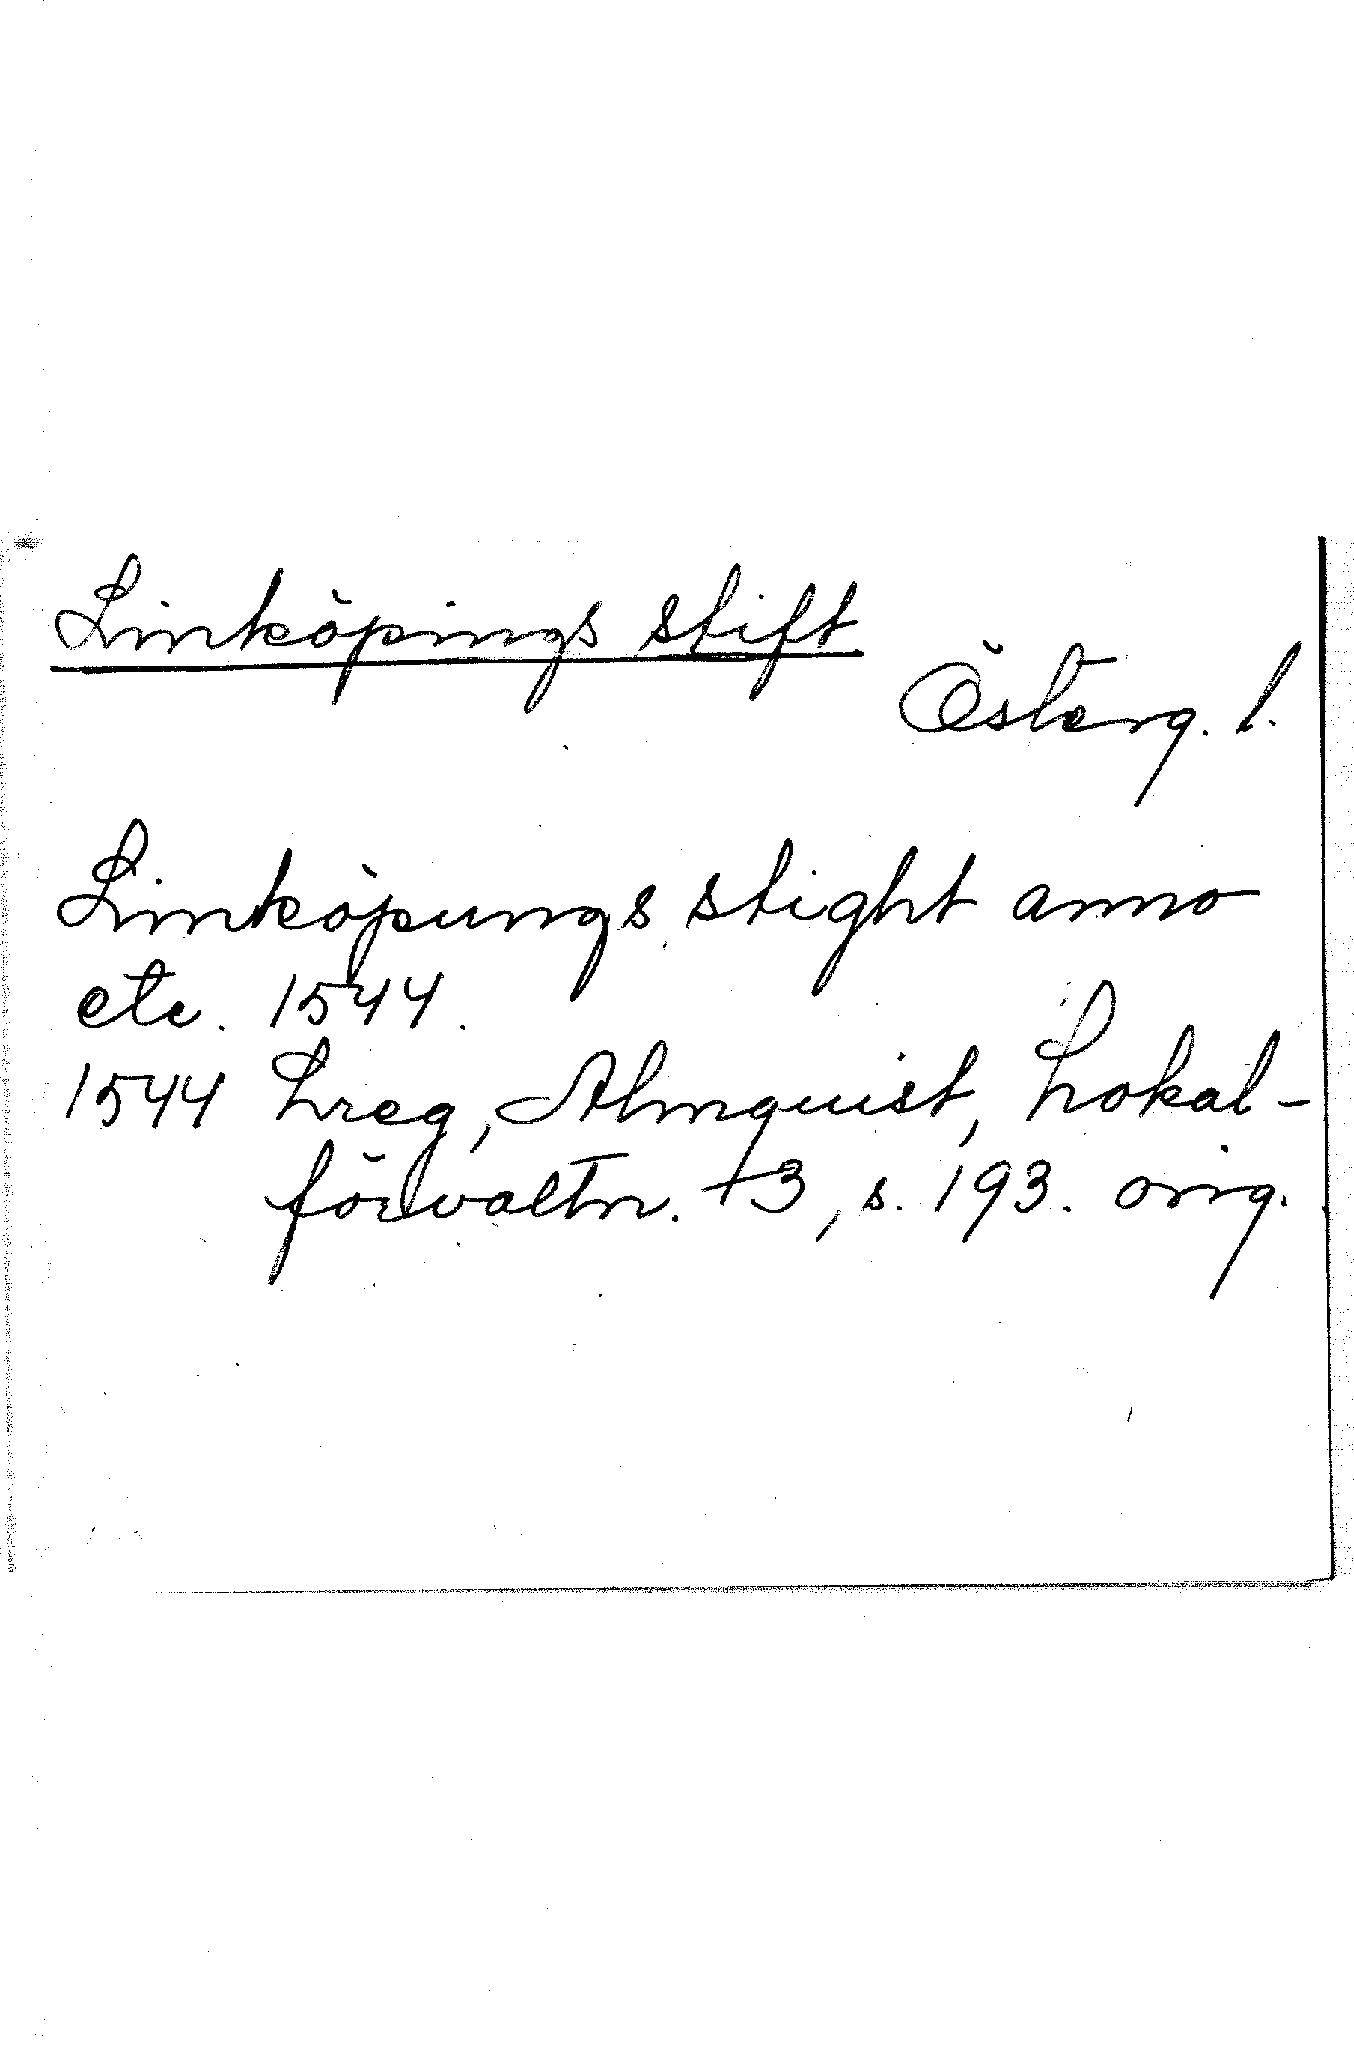 Linköpings stift
Österg. l.
Linköpungs stight anno
etc. 1544.
1544 Lreg, Almquist, Lokal-
förvaltn. +3, s. 193. orig.